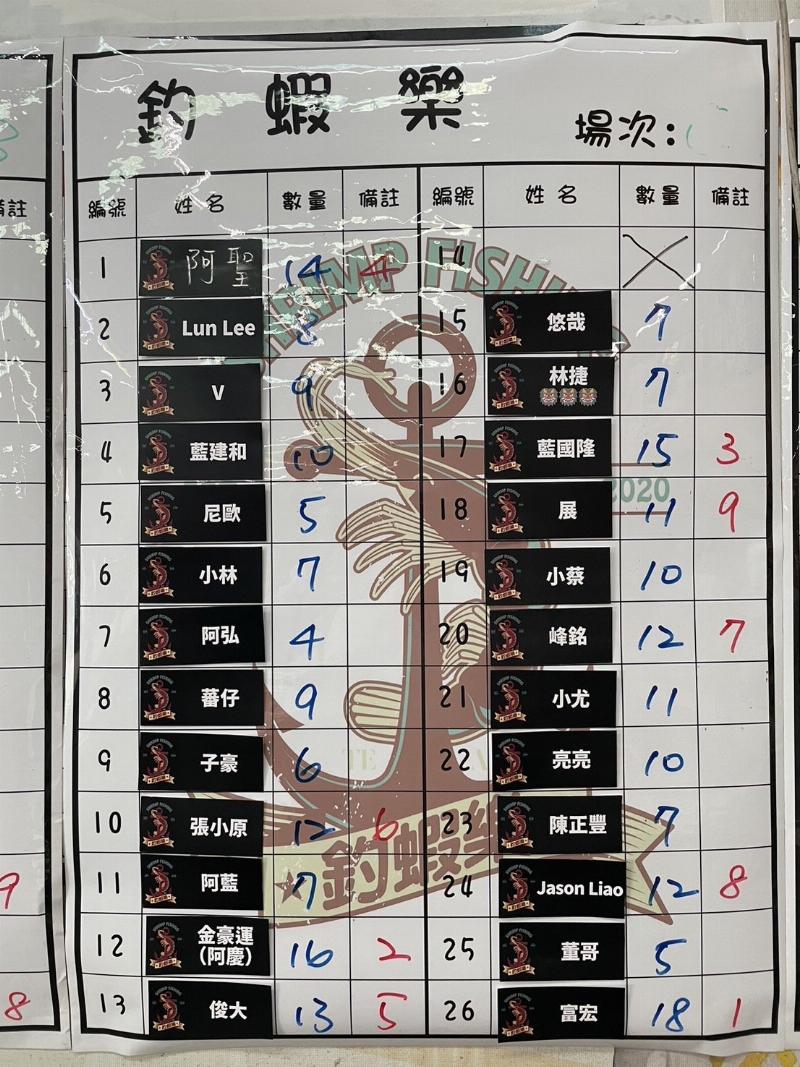 釣蝦樂
場次:
編號 姓名 數量 備註 編號 姓名 數量 備註
1 阿聖 14 4 14
2 Lun Lee 8 15 悠哉 7
3 V 9 16 林捷 7
4 藍建和 10 17 藍國隆 15 3
5 尼歐 5 18 展 11 9
6 小林 7 19 小蔡 10
7 阿弘 4 20 峰銘 12 7
8 蕃仔 9 21 小尤 11
9 子豪 6 22 亮亮 10
10 張小原 12 6 23 陳正豐 7
11 阿藍 7 24 Jason Liao 12 8
12 金豪運(阿慶) 16 2 25 董哥 5
13 俊大 13 5 26 富宏 18 1
SHRIMP FISHING
2020
釣蝦樂
備註
9
8